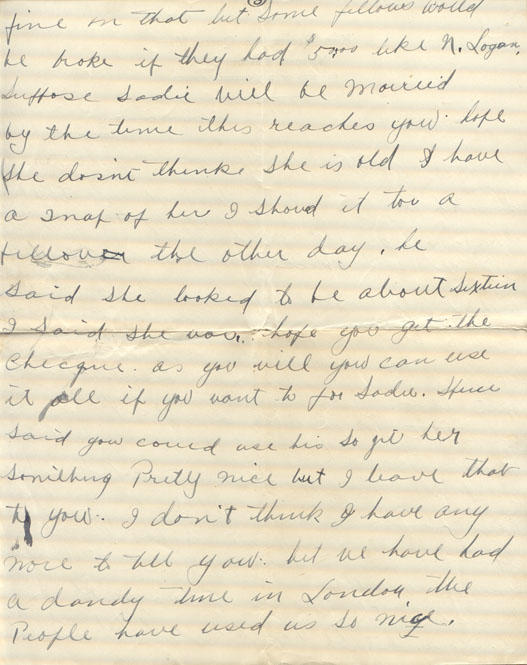 fine on that but some fellows would
be broke if they had $5000 like N. Logan.
Suppose Sadie will be married
by the time this reaches you. hope
she dosnt think she is old I have
a snap of her I showd it too a
fellover the other day. he
said she looked to be about Sixteen
I said she was. hope you get the
checque. as you will you can use
it all if you want to for Sadie.
said you could use his so get her
something Pretty nice but I leave that
to you. I don't think I have any
more to tell you. but we have had
a dandy time in London the
People have used us so nice.